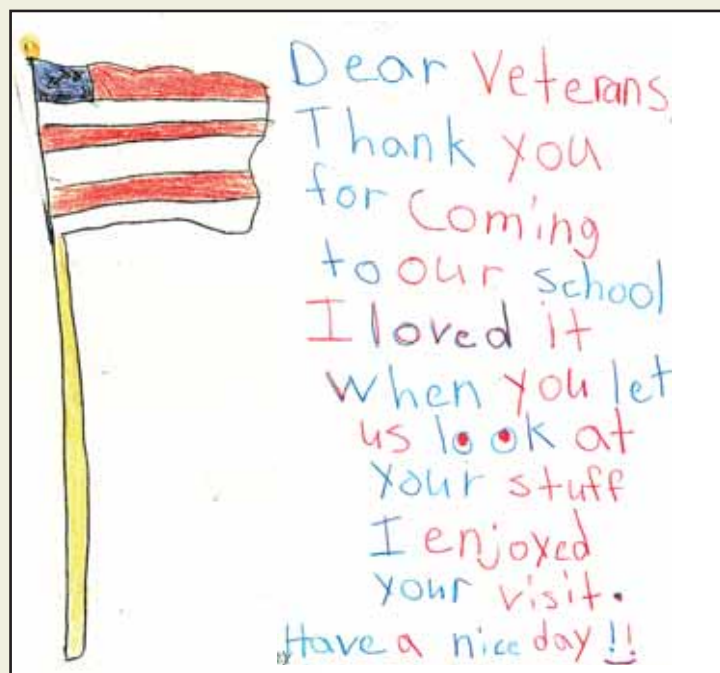 Dear Veterans
Thank you
for Coming
to our school
I loved it
when you let
us look at
your stuff
I enjoyed
your visit.
Have a nice day !!